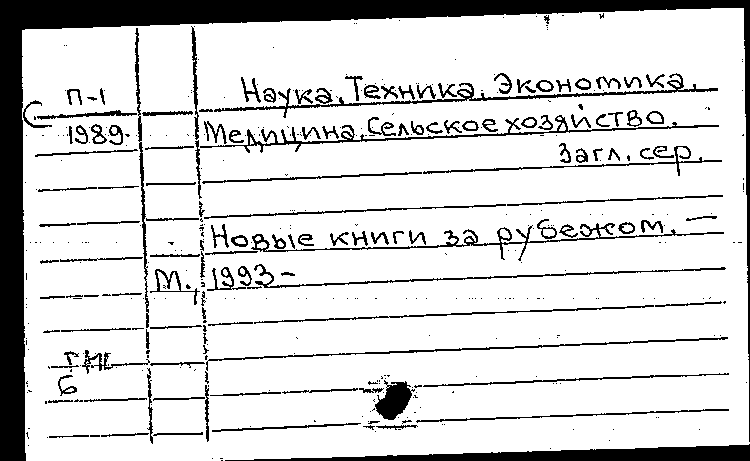 П-1
1989.
Наука. Техника. Экономика.
Медицина. Сельское хозяйство.
Загл. сер.
Новые книги за рубежом. —
М., 1993-
Б